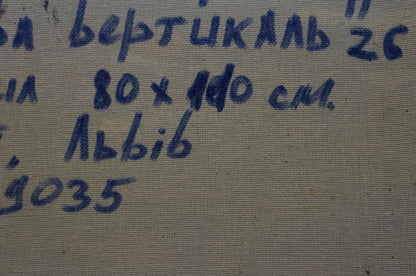 вертикаль 26
80 x 110 см.
Львів
9035